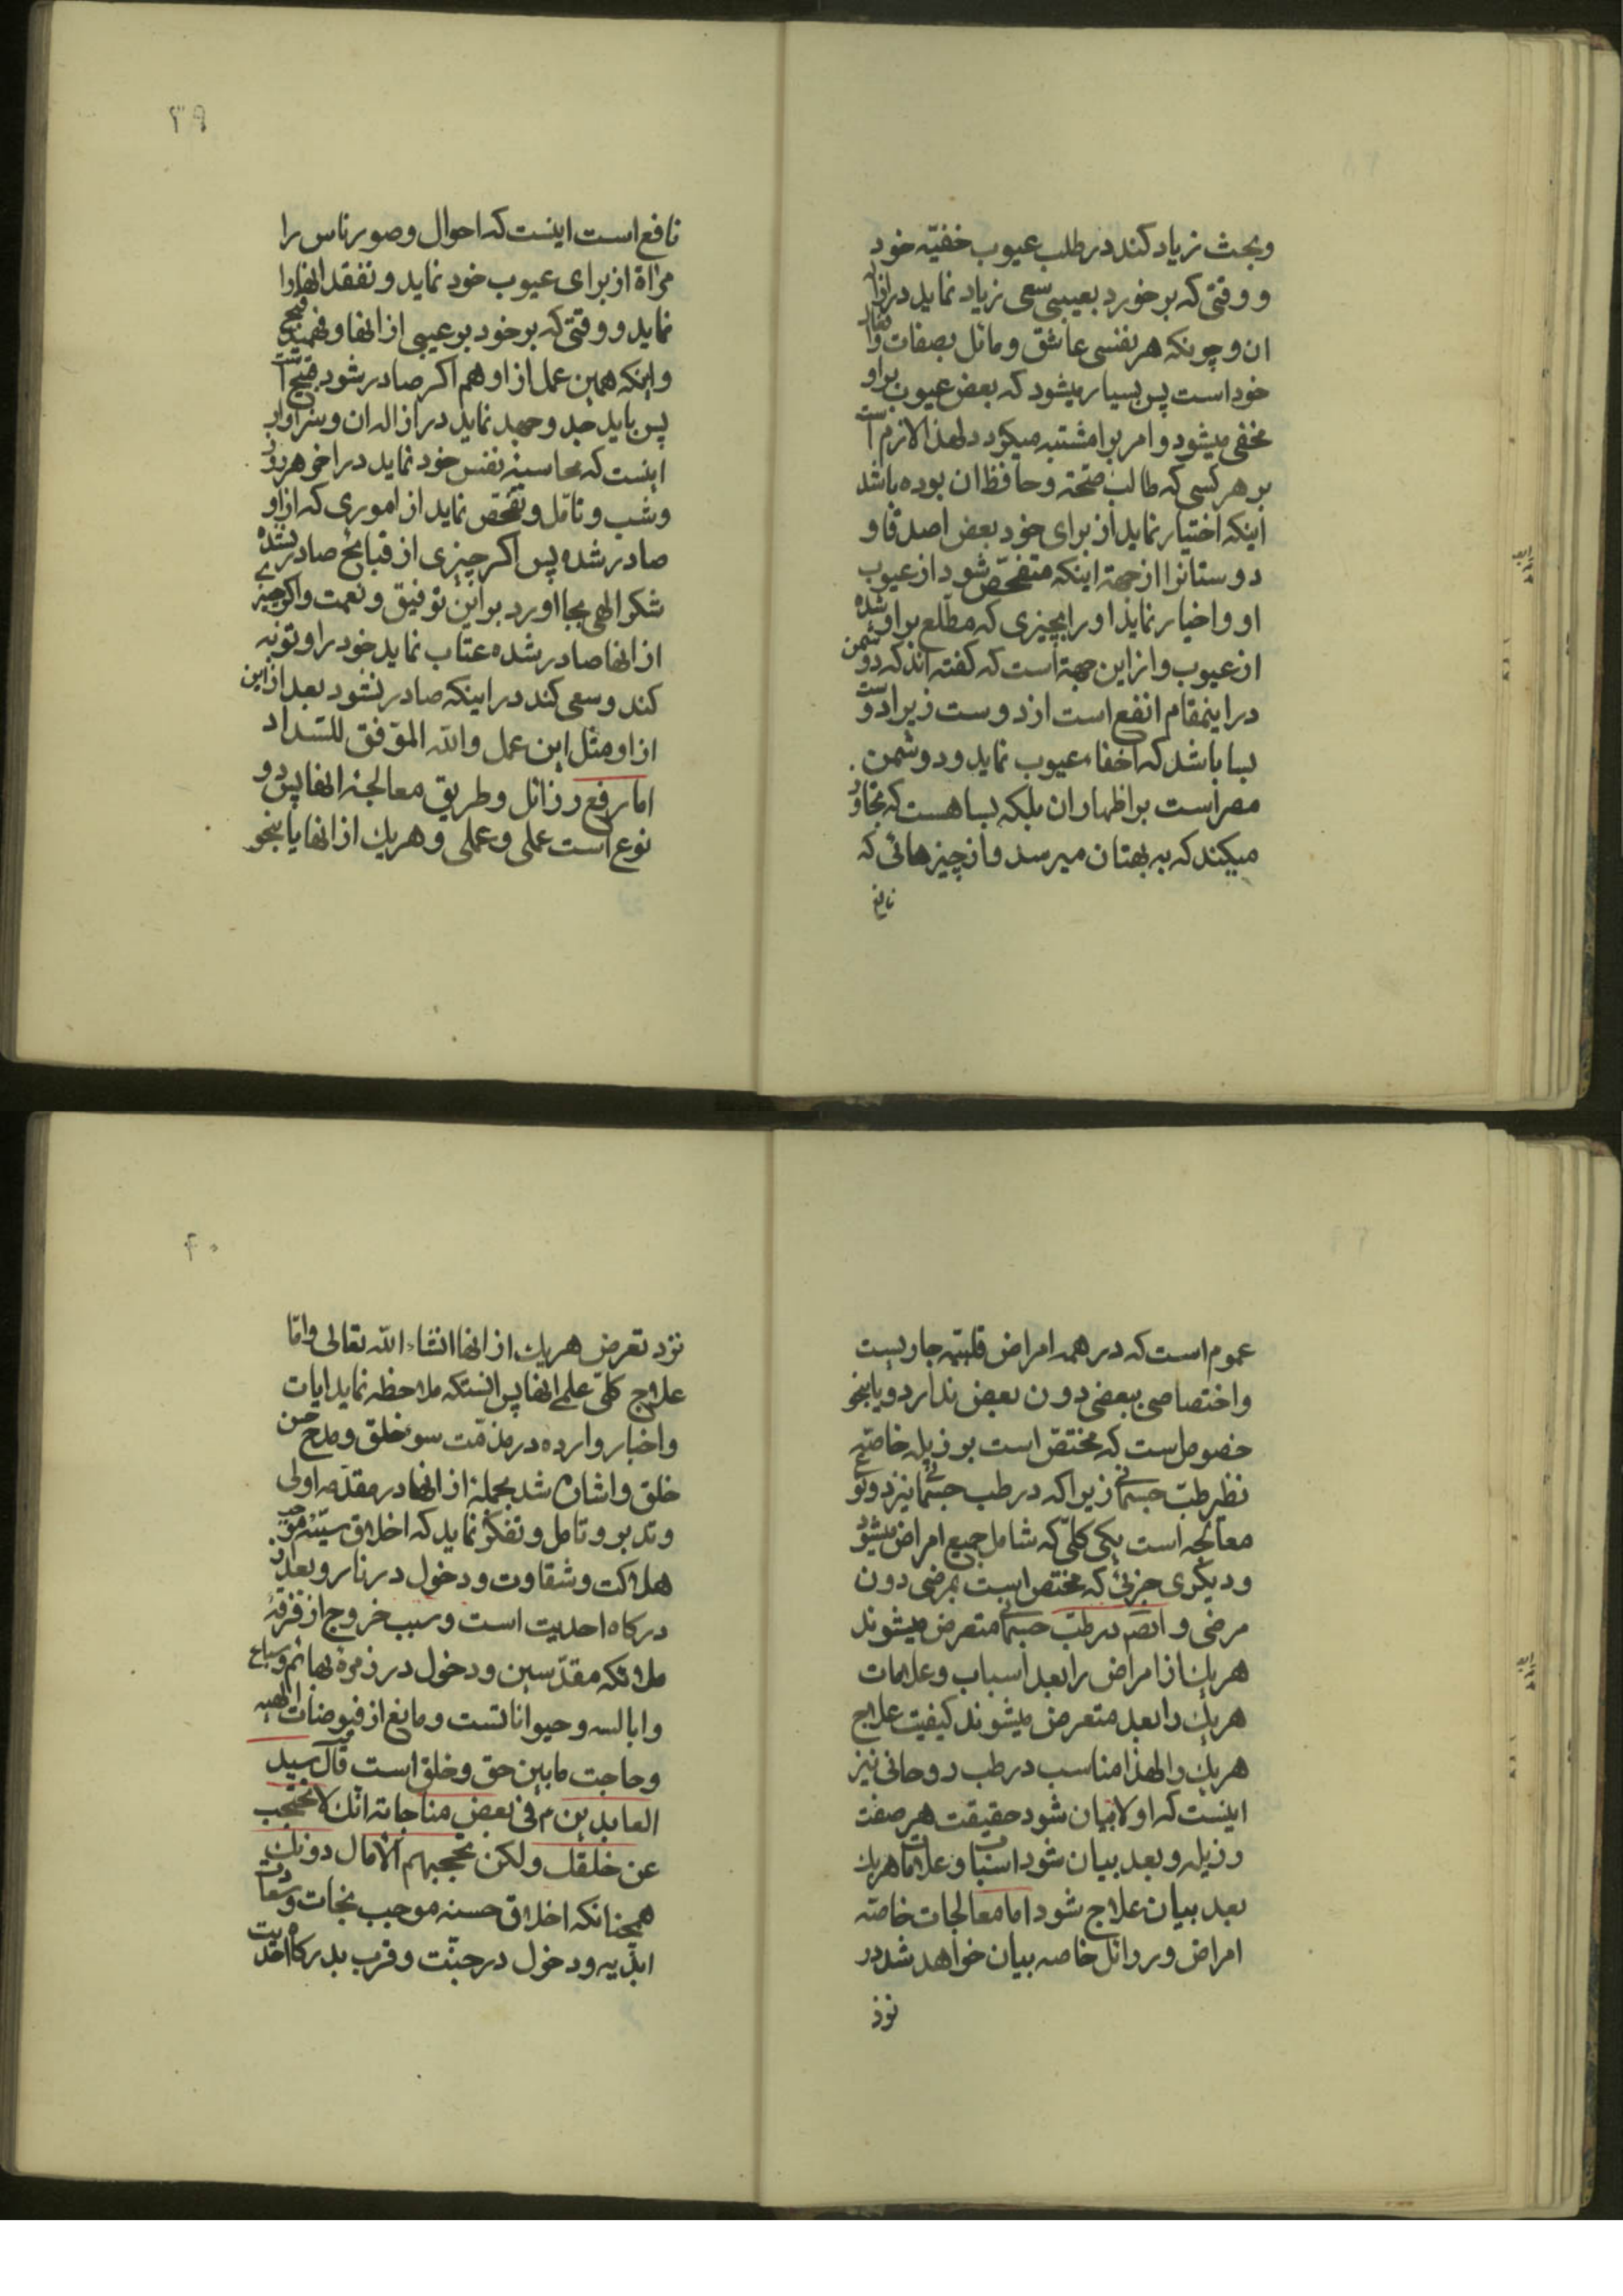 وبحث زیاد کند در طلب عیوب خفیّه خود
و وقتی که برخورد بعیبی سعی زیاد نماید در ازاله
ان و چونکه هر نفسی عاشق و مائل بصفات و افعال
خود است پس بسیار میشود که بعض عیوب بر او
مخفی میشود و امر بر او مشتبه میکردد لهذا لازم است
بر هر کسی که طالب صحّته و حافظ ان بوده باشد
اینکه اختیار نماید از برای خود بعض اصدقا و
دوستانرا از جهة اینکه متفحّص شود از عیوب
او و اخبار نماید او را بچیزی که مطّلع بر او شده
از عیوب و از این جهة است که کفته اند که دوشمن
در اینمقام انفع است از دوست زیرا دوست
بسا باشد که اخفاء عیوب نماید و دوشمن
مصر است بر اظهار ان بلکه بسا هست که تجاوز
میکند که به بهتان میرسد و از چیزهائی که
نافع
۳۹
نافع است اینست که احوال و صور ناس را
مراة از برای عیوب خود نماید و تفقد انها را
نماید و وقتی که برخورد بر عیبی از انها و فهمید قبح
و اینکه همین عمل از او هم اکر صادر شود قبیح است
پس باید جد و جهد نماید در ازاله ان و سزاوار
اینست که محاسبه نفس خود نماید در اخر هر روز
و شب و تامّل و تفحّص نماید از اموری که از او
صادر شده پس اکر چیزی از قبایح صادر نشده
شکر الهی بجا اورد بر این توفیق و نعمت و اکر چیزی
از انها صادر شده عتاب نماید خود را و توبه
کند و سعی کند در اینکه صادر نشود بعد از این
از او مثل این عمل و الله الموّفق للسّداد
اما رفع رزائل و طریق معالجه انها پس دو
نوع است علمی و عملی و هر یك از انها یا بنحو
عموم است که در همه امراض قلبیّه جاریست
و اختصاصی ببعضی دون بعض ندارد و یا بنحو
خصوص است که مختصّ است برزیله خاصّه
نظیر طبّ جسمانی زیرا که در طب جسمانی نیز دو نوع
معالجه است یکی کلّی که شامل جمیع امراض میشود
و دیکری جزئی که مختص است بمرضی دون
مرضی و ایضم در طبّ جسمانی متعرض میشوند
هر یك از امراض را بعد اسباب و علامات
هر یك را بعد متعرض میشوند کیفیّت علاج
هر یك را لهذا مناسب در طب روحانی نیز
اینست که اولا بیان شود حقیقت هر صفت
رزیله و بعد بیان شود اسباب و علامات هر یك
بعد بیان علاج شود اما معالجات خاصّه
امراض و رزائل خاصه بیان خواهد شد در
نزد
۴۰
نزد تعرض هر یك از انها انشاء الله تعالی و امّا
علاج کلّی علمی انها پس انستکه ملاحظه نماید ایات
و اخبار وارده در مذمّت سوء خلق و مدح حسن
خلق و اشاره شد بجملة از انها در مقدّمه اولی
و تدبر و تامل و تفکّر نماید که اخلاق سیّئه موجب
هلاکت و شقاوت و دخول در نار و بعد از
درکاه احدیت است و سبب خروج از فرقهٔ
ملائکه مقدّسین و دخول در زمرهٔ بهائم و سباع
و ابالسه و حیواناتست و مانع از فیوضات الهیه
و حاجت مابین حق و خلق است قال سید
العابدین م فی بعض مناجاته انّك لا تحتجب
عن خلقك ولکن تحجبهم الآمال دونك
همچنانکه اخلاق حسنه موجب نجات و سعادت
ابدّیه و دخول در جنّت و قرب بدرکاه احدیت